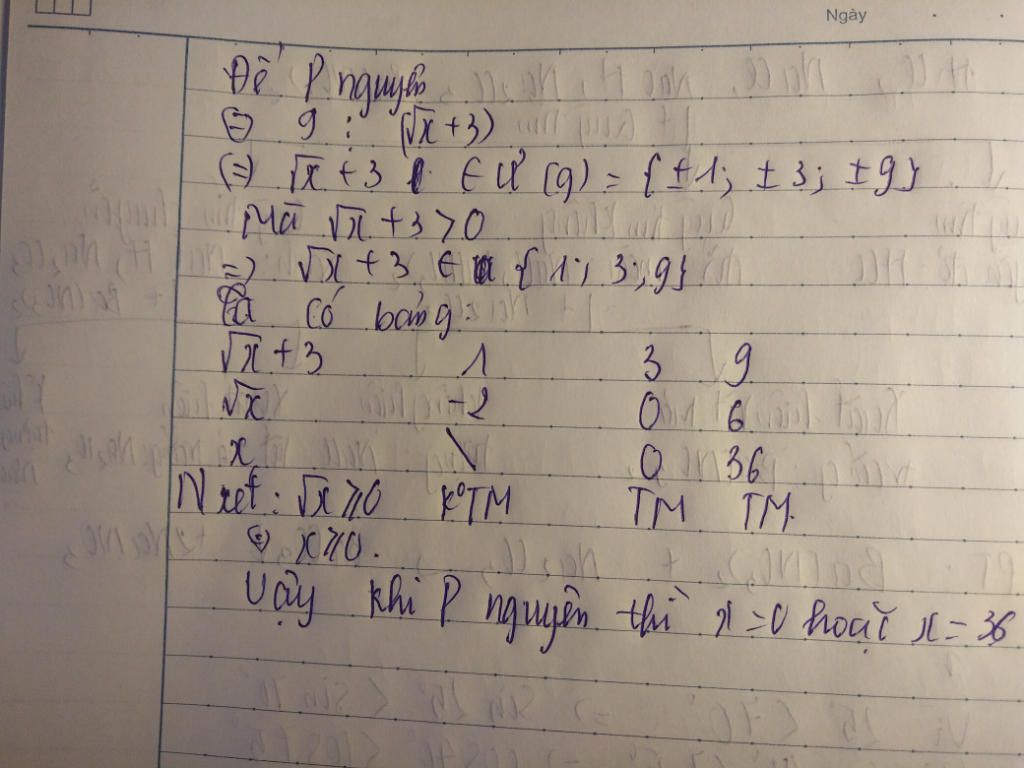 Ngày
Để P nguyên
⇔ 9 ⋮ (√x + 3)
(=) √x + 3 ∈ Ư (9) = {±1; ±3; ±9}
Mà √x + 3 > 0
=> √x + 3 ∈ {1; 3; 9}
Ta có bảng:
√x + 3 1 3 9
√x -2 0 6
x \ 0 36
N xét: √x ≥ 0 K° TM TM TM.
⇔ x ≥ 0.
Vậy khi P nguyên thì x = 0 hoặc x = 36